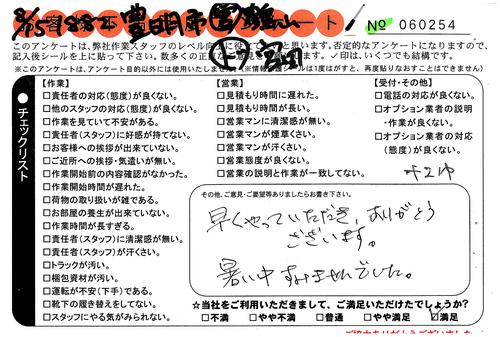 8/5
1882
豊明市
№ 060254
このアンケートは、弊社作業スタッフのレベル向上に役立てたいと思います。否定的なアンケートになりますので、
記入後シールを上に貼って下さい。数多くの正直な
ご意見をお願いします。✓印は、いくつでも結構です。
※このアンケートは、アンケート目的以外には使用いたしません。
シールは1度はがすと、再度貼りなおすことはできません)
チェックリスト
【作業】
□責任者の対応(態度)が良くない。
□他のスタッフの対応(態度)が良くない。
□作業を見ていて不安がある。
□責任者(スタッフ)に好感が持てない。
□お客様への挨拶が出来ていない。
□ご近所への挨拶・気遣いが無い。
□作業開始前の内容確認がなかった。
□作業開始時間が遅れた。
□荷物の取り扱いが雑である。
□お部屋の養生が出来ていない。
□作業時間が長すぎる。
□責任者(スタッフ)に清潔感が無い。
□責任者(スタッフ)が汗くさい。
□トラックが汚い。
□梱包資材が汚い。
□運転が不安(下手)である。
□靴下の履き替えをしてない。
□スタッフにやる気がみられない。
【営業】
□見積もり時間に遅れた。
□見積もり時間が長い。
□営業マンに清潔感が無い。
□営業マンが煙草くさい。
□営業マンが汗くさい。
□営業態度が良くない。
□営業の説明と作業が一致してない。
【受付・その他】
□電話の対応が良くない。
□オプション業者の説明
・作業が良くない。
□オプション業者の対応
(態度)が良くない。
その他、ご意見・ご要望等ありましたらお書き下さい。
早くやっていただき、ありがとう
ございます。
暑い中すみませんでした。
☆当社をご利用いただきまして、ご満足いただけたでしょうか?
□不満 □やや不満 □普通 □やや満足 ☑満足